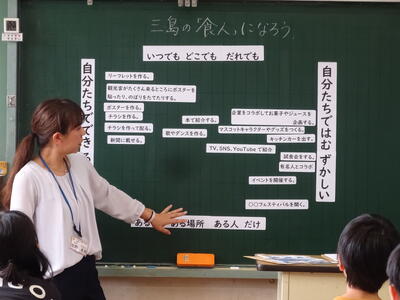 三島の「食人」になろう.
いつでも どこでも だれでも
自分たちでできる
自分たちではむずかしい
リーフレットを作る。
観光客がたくさん来るところにポスターを
貼ったり、のぼりをたてたりする。
ポスターを作る。
チラシを作る。
チラシを作って配る。
新聞に載せる。
本で紹介する。
歌やダンスを作る。
企業とコラボしてお菓子やジュースを
企画する。
マスコットキャラクターやグッズをつくる。
キッチンカーを出す。
TV、SNS、YouTubeで紹介
試食会をする。
有名人とコラボ
イベントを開催する。
〇〇フェスティバルを開く。
ある場所 ある人 だけ